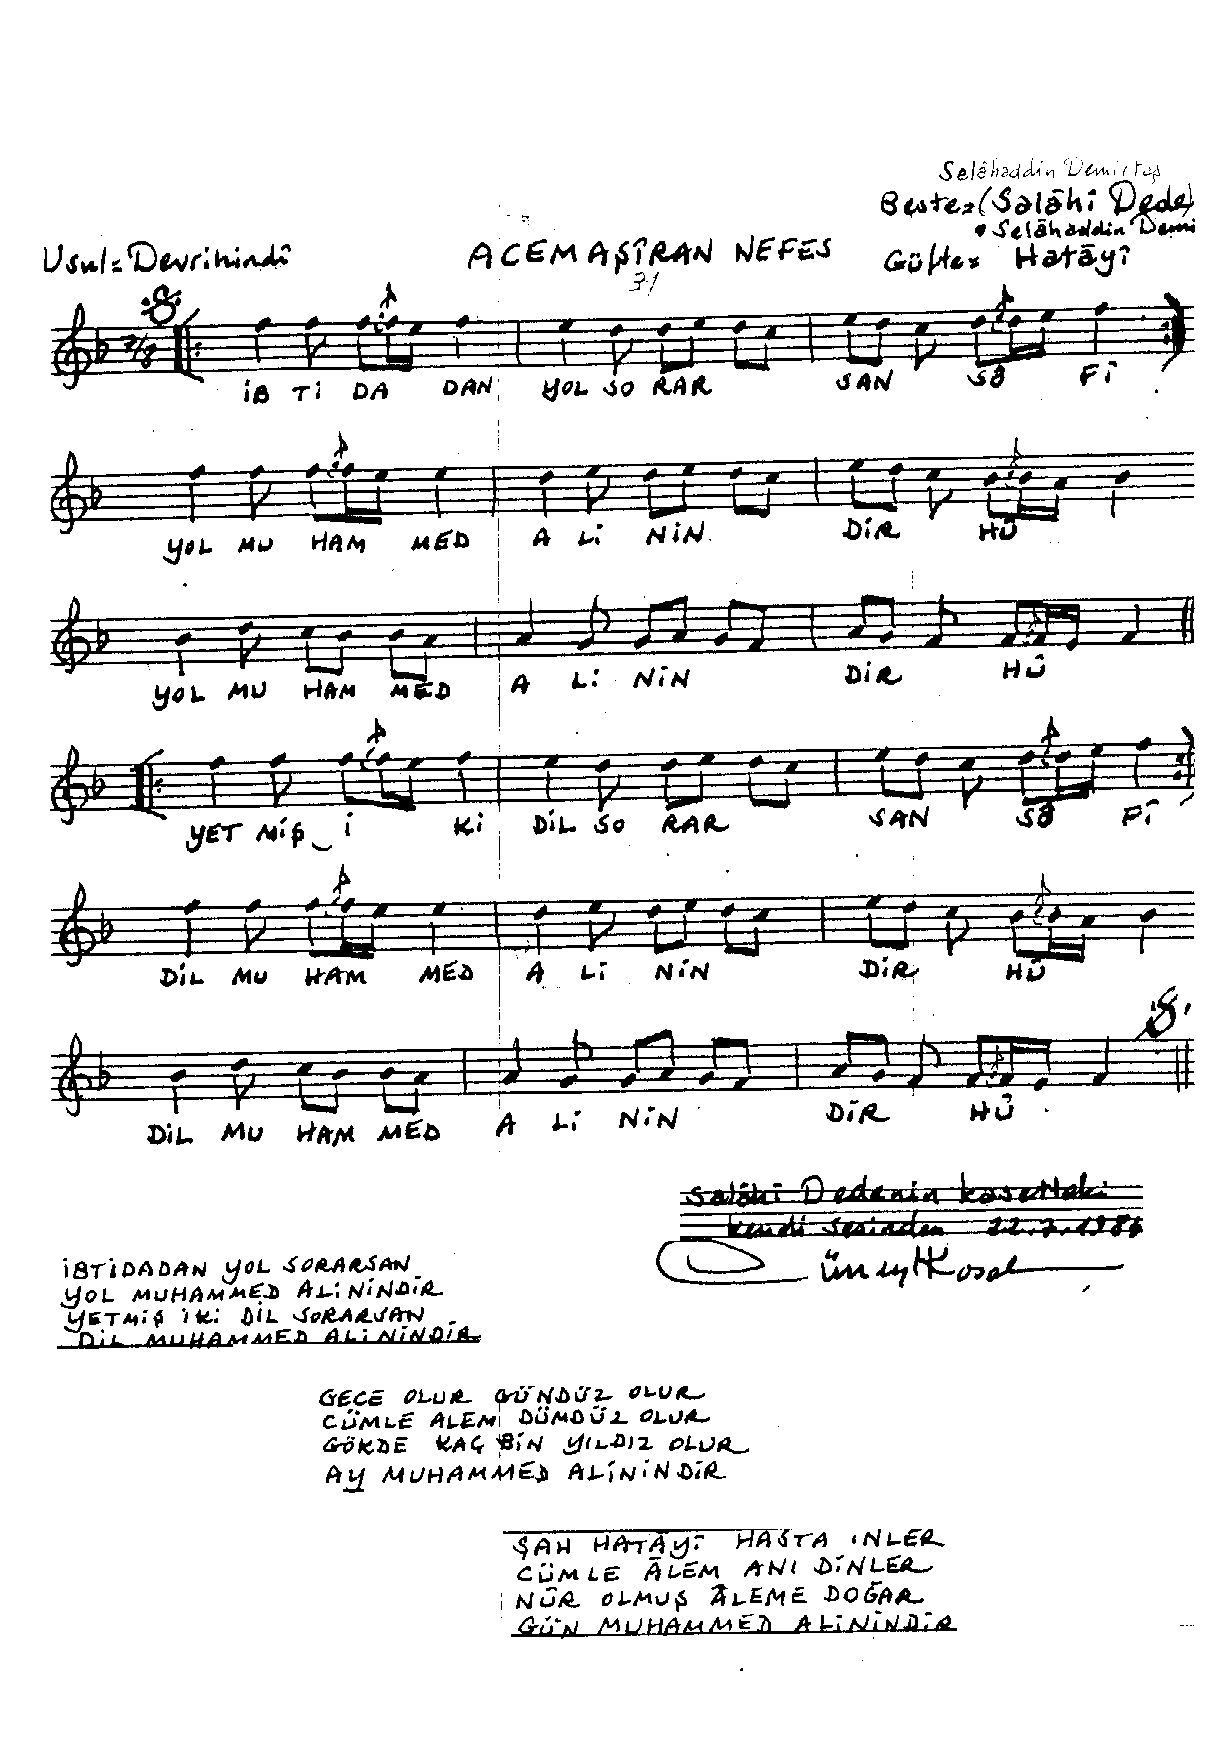 Selâhaddin Demirtaş
Beste=(Salâhî Dede)
• Selâhaddin Demi
Usul= Devrihindî ACEMAŞÎRAN NEFES Güfte= Hatâyî
31
7/8
İB Tİ DA DAN YOL SO RAR SAN SO FÎ
YOL MU HAM MED A Lİ NİN DİR HÛ
YOL MU HAM MED A Lİ NİN DİR HÛ
YET MİŞ İ Kİ DİL SO RAR SAN SO FÎ
DİL MU HAM MED A Lİ NİN DİR HÛ
DİL MU HAM MED A Lİ NİN DİR HÛ
Salâhî Dedenin kasetteki
kendi sesinden 22.7.1986
Cüneyt Kosal
İBTİDADAN YOL SORARSAN
YOL MUHAMMED ALİNİNDİR
YETMİŞ İKİ DİL SORARSAN
DİL MUHAMMED ALİNİNDİR
GECE OLUR GÜNDÜZ OLUR
CÜMLE ALEM DÜMDÜZ OLUR
GÖKDE KAÇ BİN YILDIZ OLUR
AY MUHAMMED ALİNİNDİR
ŞAH HATÂYÎ HASTA INLER
CÜMLE ÂLEM ANI DİNLER
NÛR OLMUŞ ÂLEME DOĞAR
GÜN MUHAMMED ALİNİNDİR